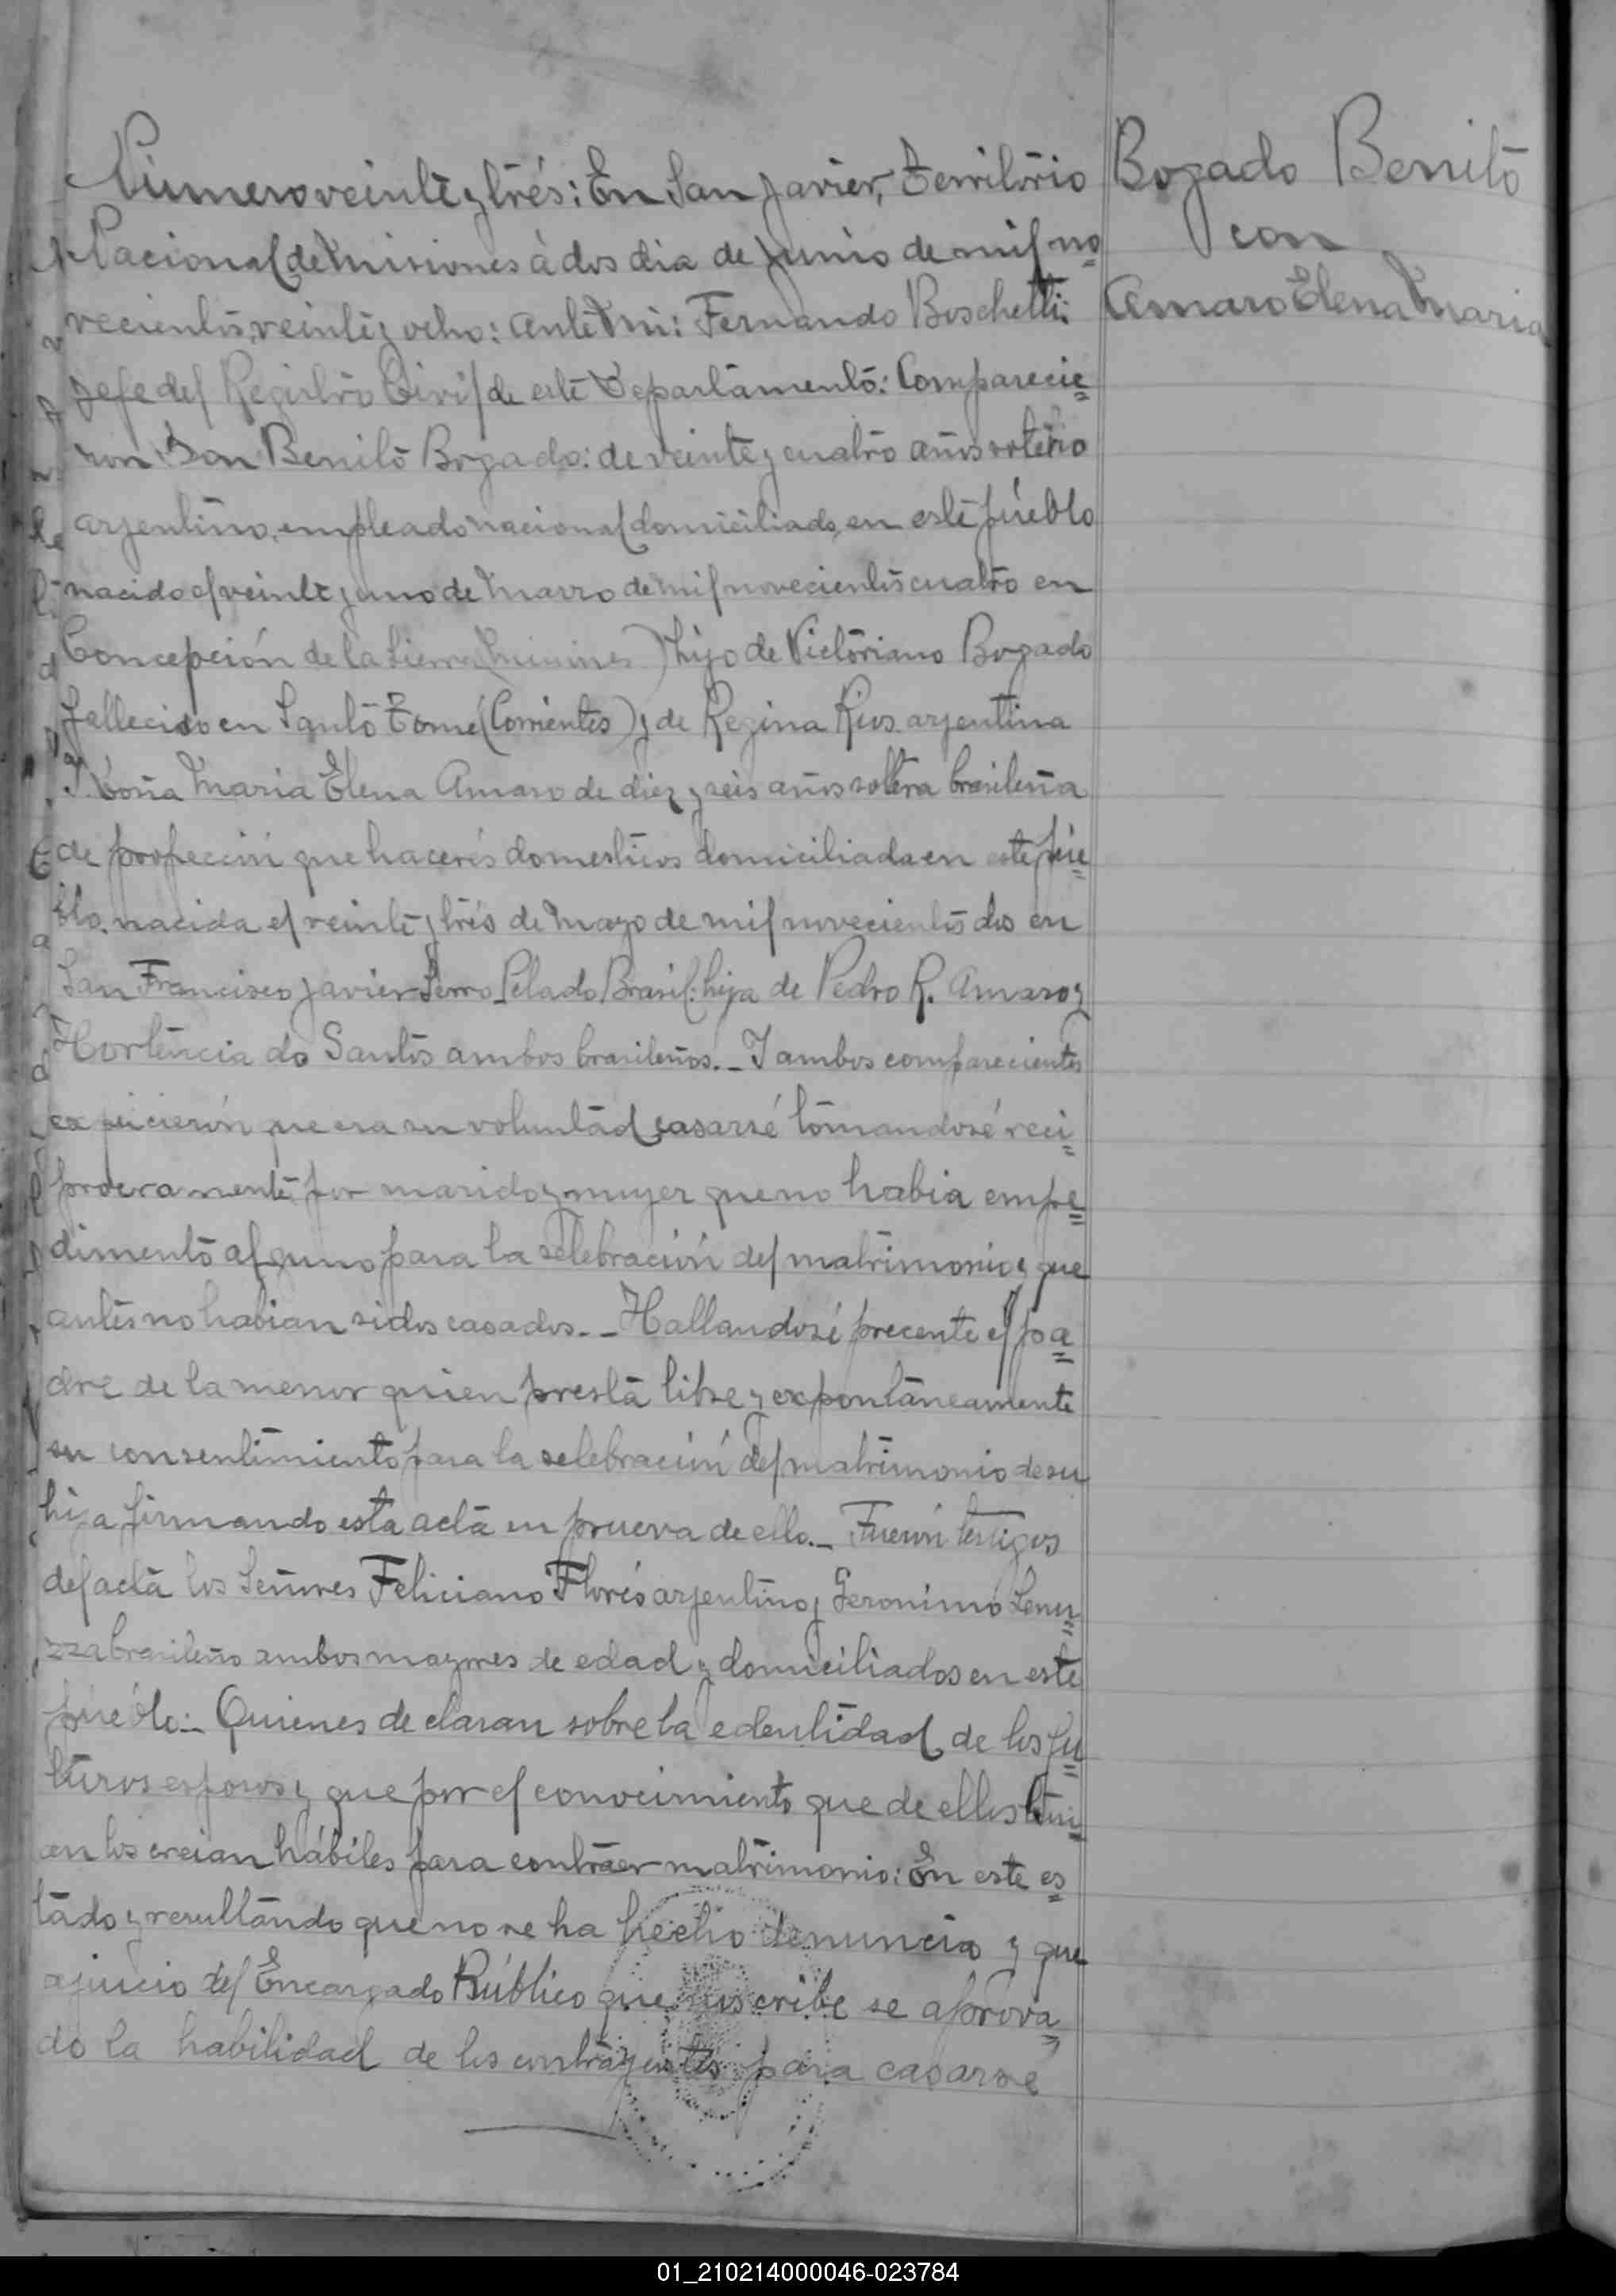 Bogado Benito
con
Amaro Elena Maria
Número veinte y trés: En San Javier, Territorio
Nacional de Misiones à dos dia de Junio de mil no
vecientos, veinte y ocho: Ante Mi: Fernando Boschetti:
Jefe del Registro Civil de este Departamento: Comparecie
ron Don Benito Bogado: de veinte y cuatro años soltero
argentino, empleado nacional domiciliado, en este pueblo
nacido el veinte y uno de Marzo de mil novecientos cuatro en
Concepción de la Sierra (Misiones) hijo de Victoriano Bogado
fallecido en Santo Tomé (Corrientes) y de Regina Rios argentina
Y Doña Maria Elena Amaro de diez y seis años soltera brasileña
de profeción que hacerés domesticos domiciliada en este pue
blo, nacida el veinte y trés de Mayo de mil novecientos dos en
San Francisco Javier Serro Pelado Brasil: hija de Pedro R. Amaro y
Hortencia do Santos ambos brasileños._ Y ambos comparecientes
expicierón que era su voluntad casarsé tomandosé reci
procramente por marido y muger que no habia empe
dimento alguno para la selebración del matrimonio y que
antes no habian sidos casados._ Hallandosé precente el pa
dre de la menor quien presta libre y expontáneamente
su consentimiento para la selebración del matrimonio de su
hija firmando esta acta en prueva de ello._ Fuerón testigos
del acta los Señores Feliciano Florés argentino y Geronimo
brasileño ambos mayores de edad y domiciliados en este
pueblo:_ Quienes declaran sobre la edentidad de los fu
turos esposos y que por el conocimiento que de ellos teni
an los creian hábiles para contraer matrimonio: En este es
tado y resultando que no se ha hecho denuncia y que
ajuicio del Encargado Público que suscribe se aprova
do la habilidad de los contrayentes para casarsé
01_210214000046-023784